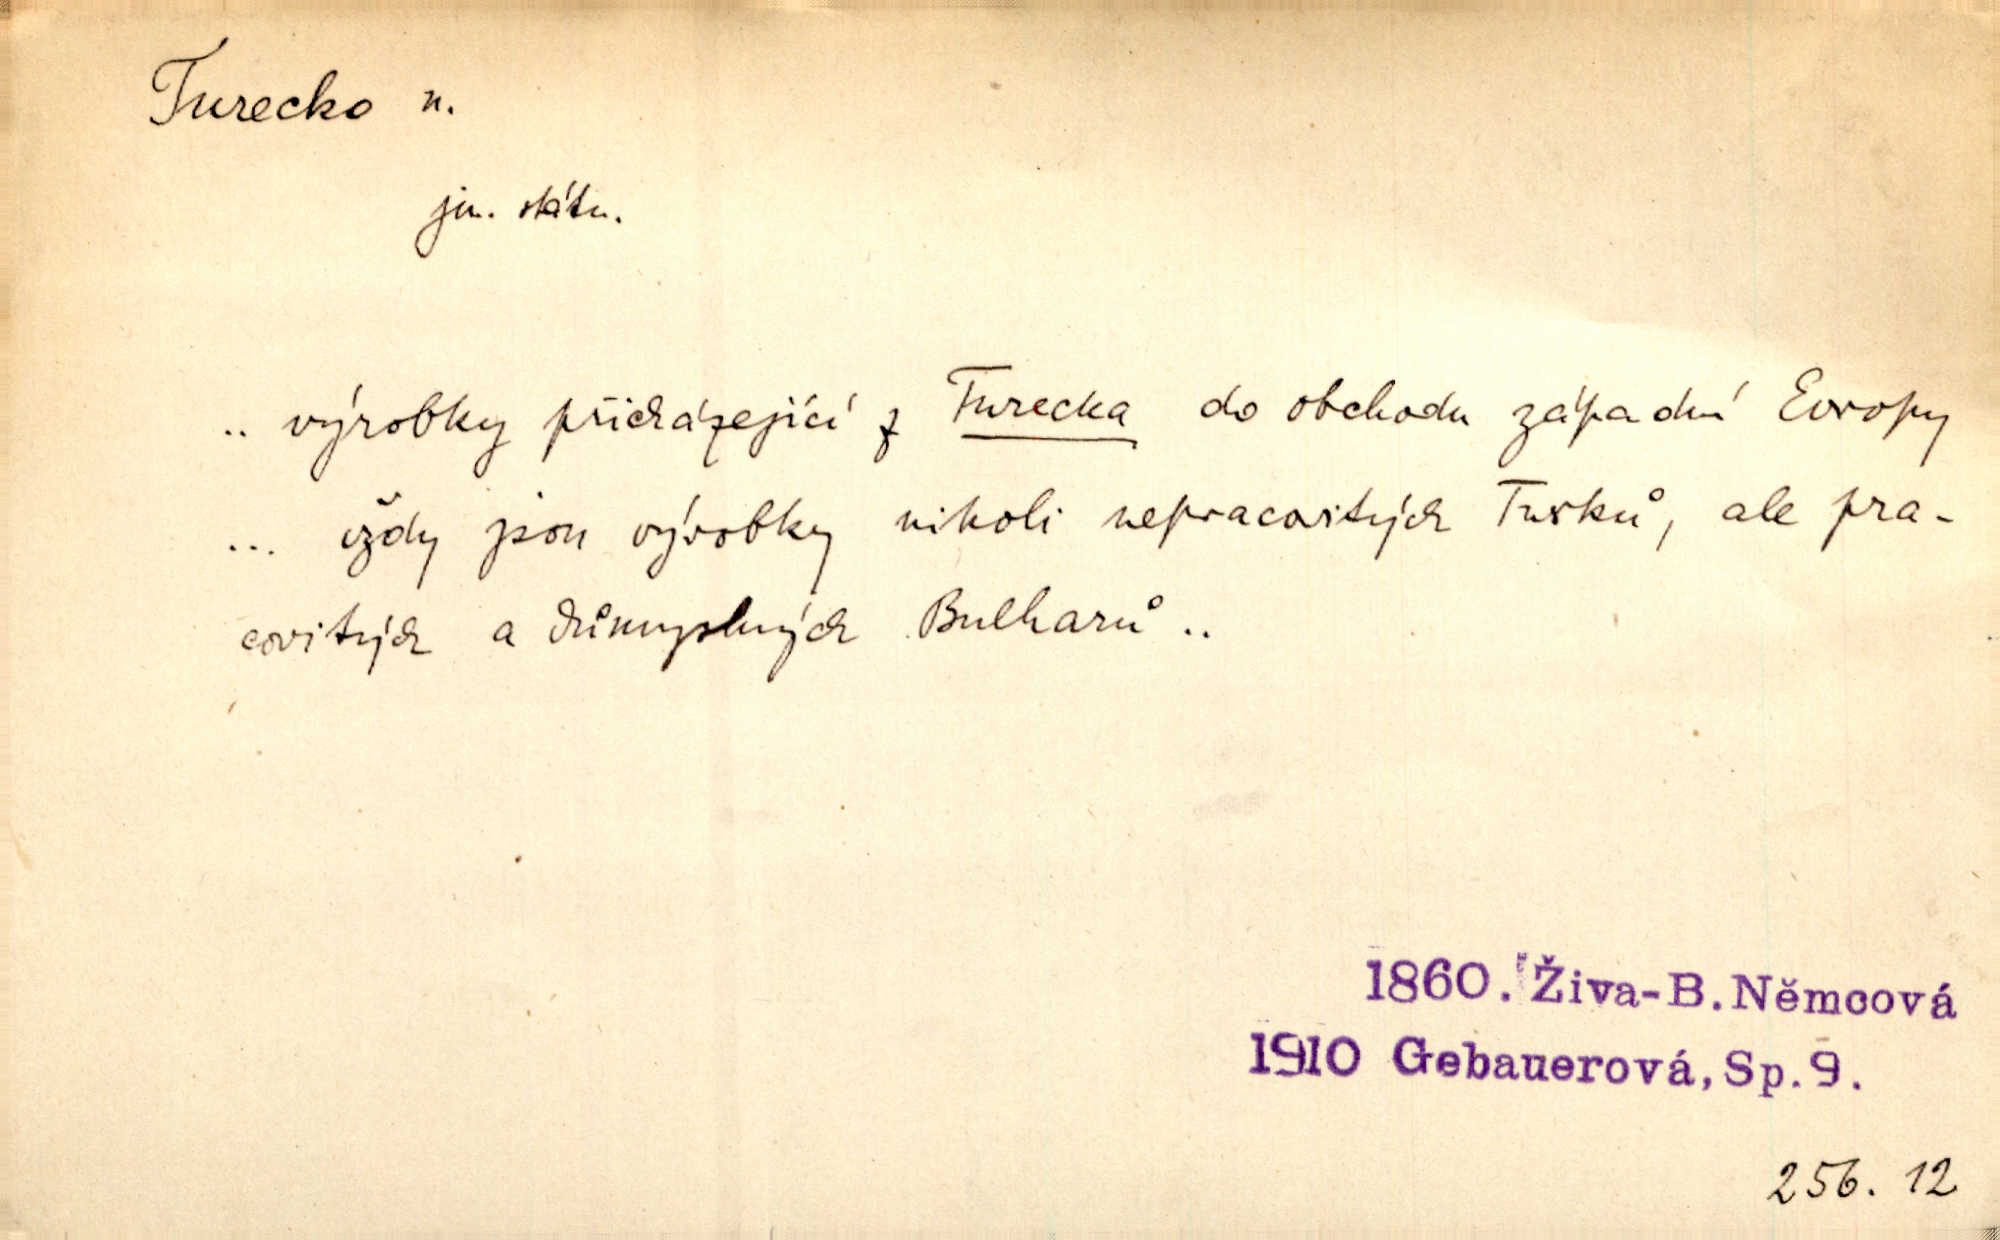 Turecko n.
jm. státu.
.. výrobky přicházející z Turecka do obchodu západní Evropy
... vždy jsou výrobky nikoli nepracovitých Turků, ale pra-
covitých a důmyslných Bulharů ..
1860. Živa-B.Němcová
1910 Gebauerová, Sp.9.
256. 12